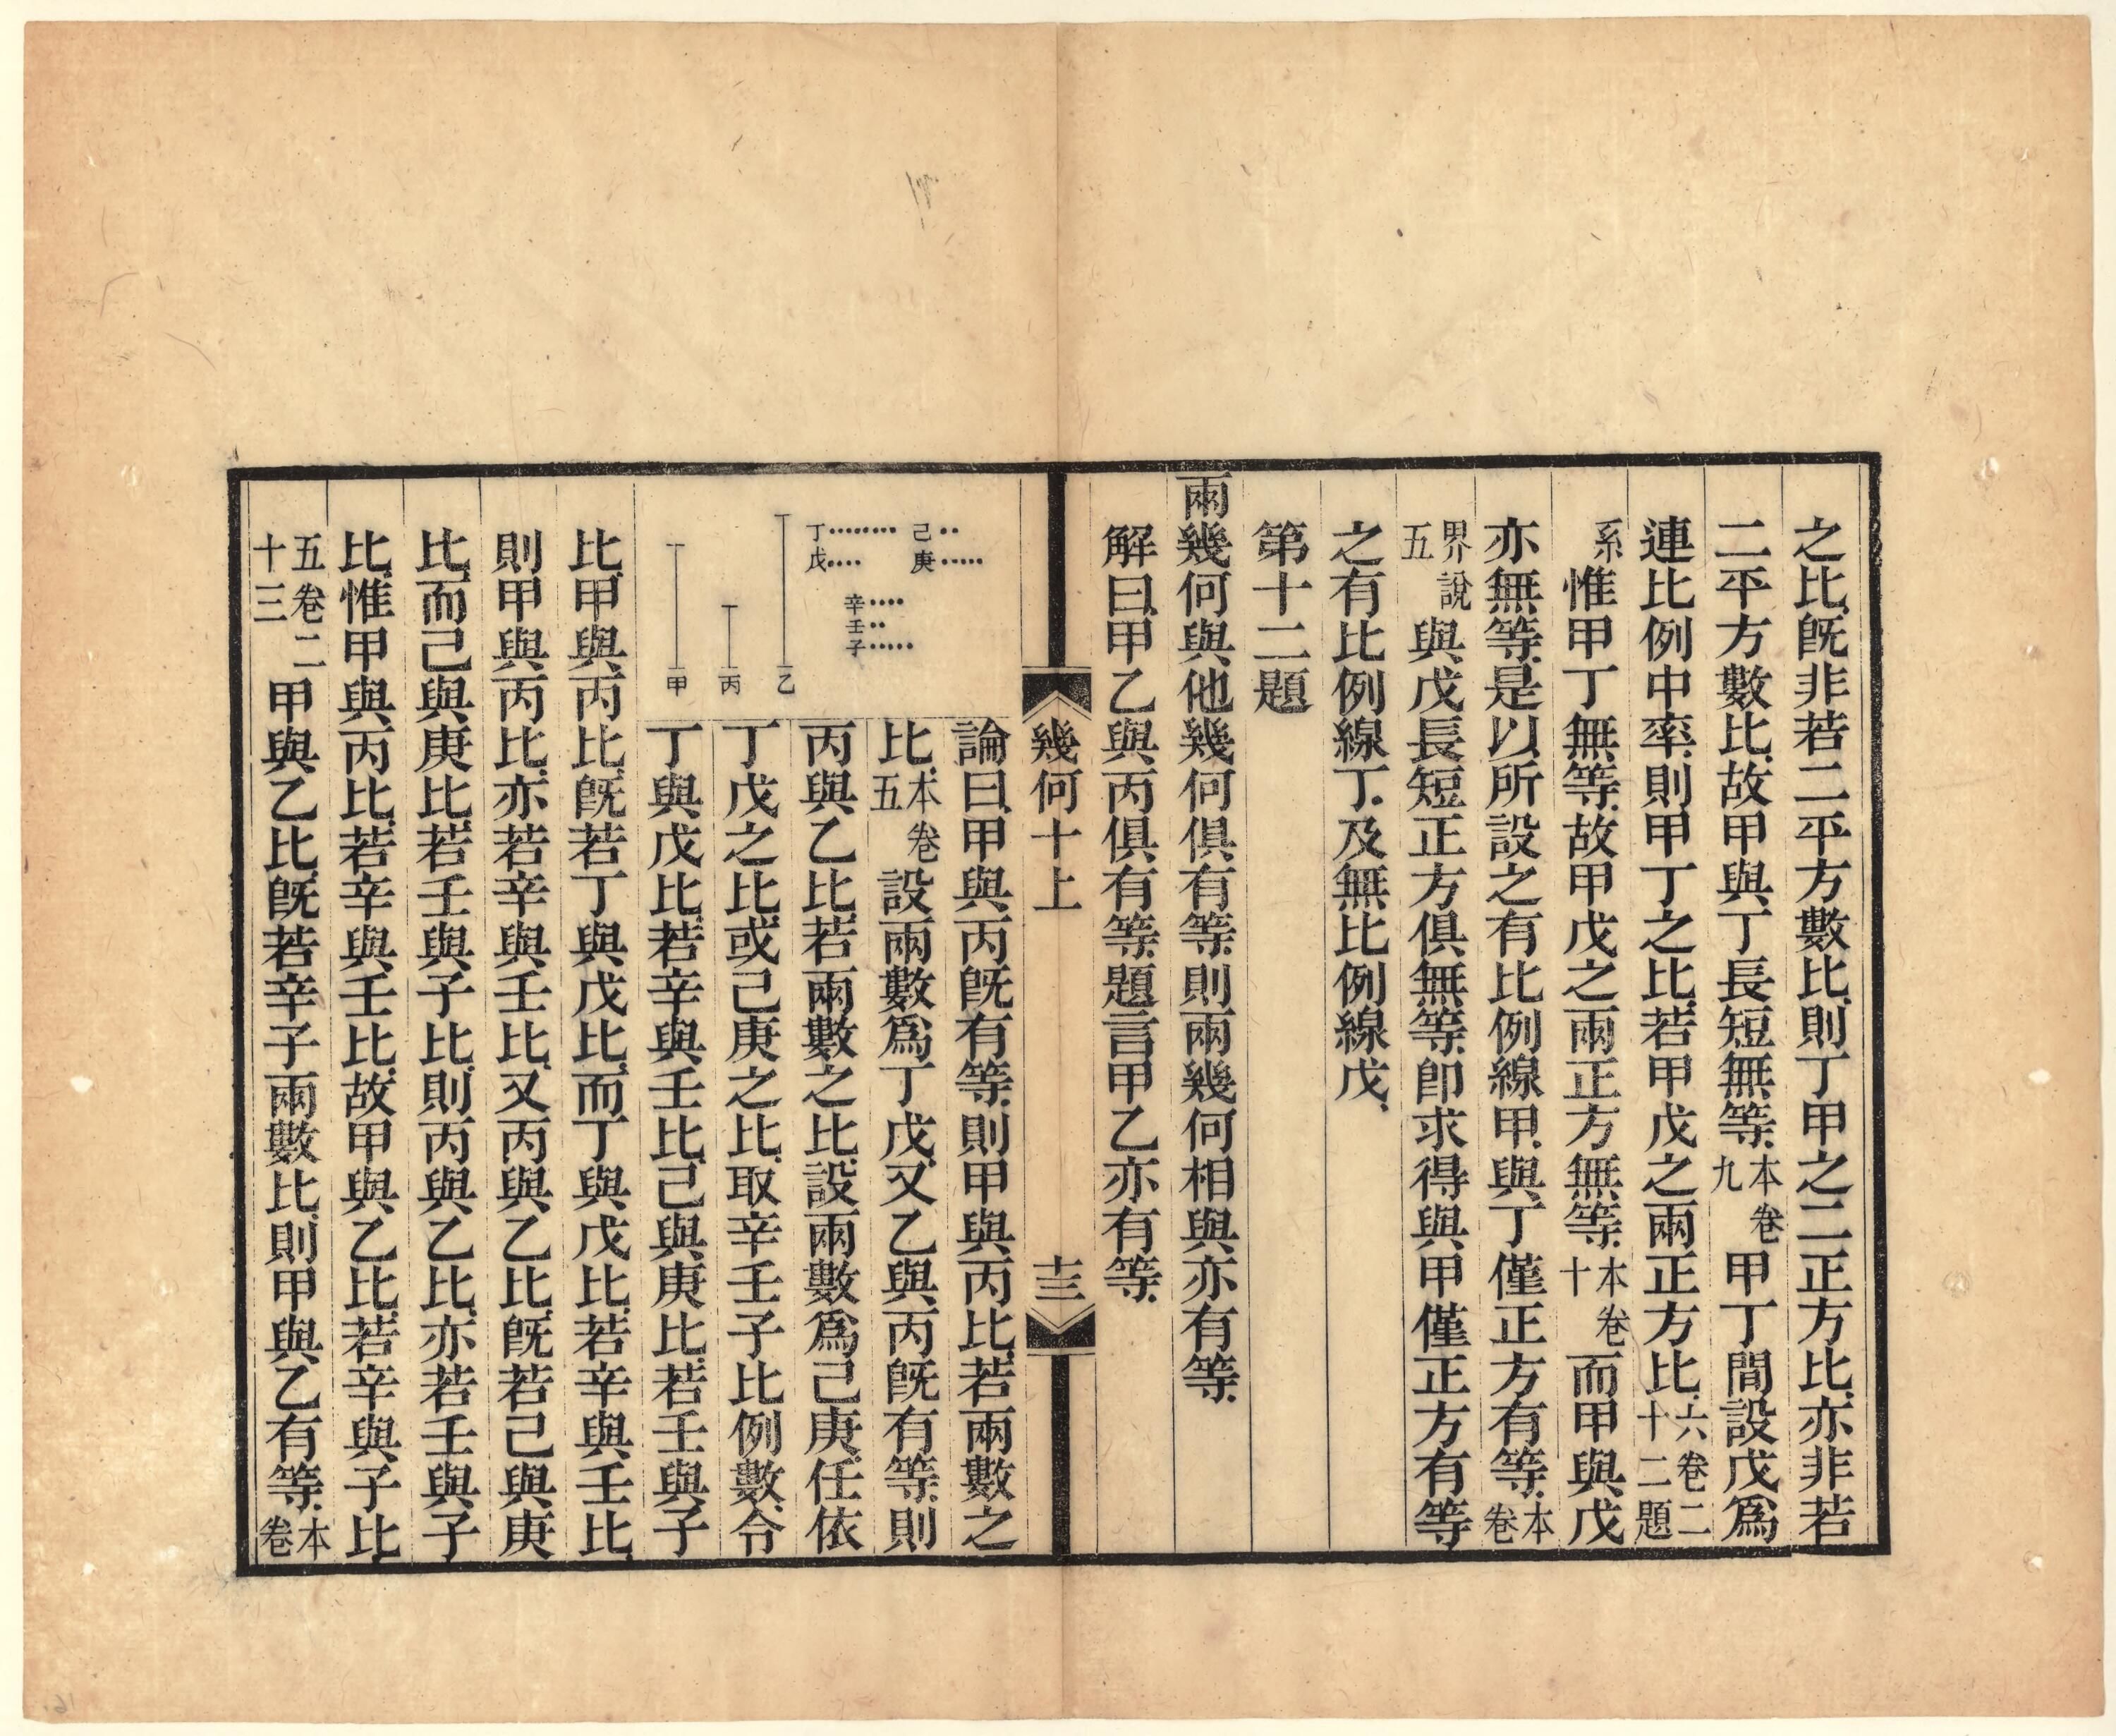 之比、旣非若二平方數比、則丁甲之二正方比、亦非若
二平方數比、故甲與丁長短無等、本卷九甲丁間設戊爲
連比例中率、則甲丁之比、若甲戊之兩正方比、六卷二十二題
系惟甲丁無等、故甲戊之兩正方無等、本卷十而甲與戊
亦無等、是以所設之有比例線甲、與丁僅正方有等、本卷
界說五與戊長短正方俱無等、卽求得與甲僅正方有等
之有比例線丁、及無比例線戊、
第十二題
兩幾何與他幾何俱有等、則兩幾何相與亦有等、
解曰、甲乙與丙俱有等、題言甲乙亦有等、
幾何十上
十三
論曰、甲與丙旣有等、則甲與丙比、若兩數之
比、本卷五設兩數爲丁戊、又乙與丙旣有等、則
丙與乙比、若兩數之比、設兩數爲己庚、任依
丁戊之比、或己庚之比、取辛壬子比例數、令
丁與戊比、若辛與壬比、己與庚比、若壬與子
己
庚
丁
戊
辛
壬
子
乙
丙
甲
比、甲與丙比、旣若丁與戊比、而丁與戊比、若辛與壬比、
則甲與丙比、亦若辛與壬比、又丙與乙比、旣若己與庚
比、而己與庚比、若壬與子比、則丙與乙比、亦若壬與子
比、惟甲與丙比、若辛與壬比、故甲與乙比、若辛與子比、
五卷二十三甲與乙比、旣若辛子兩數比、則甲與乙有等、本卷